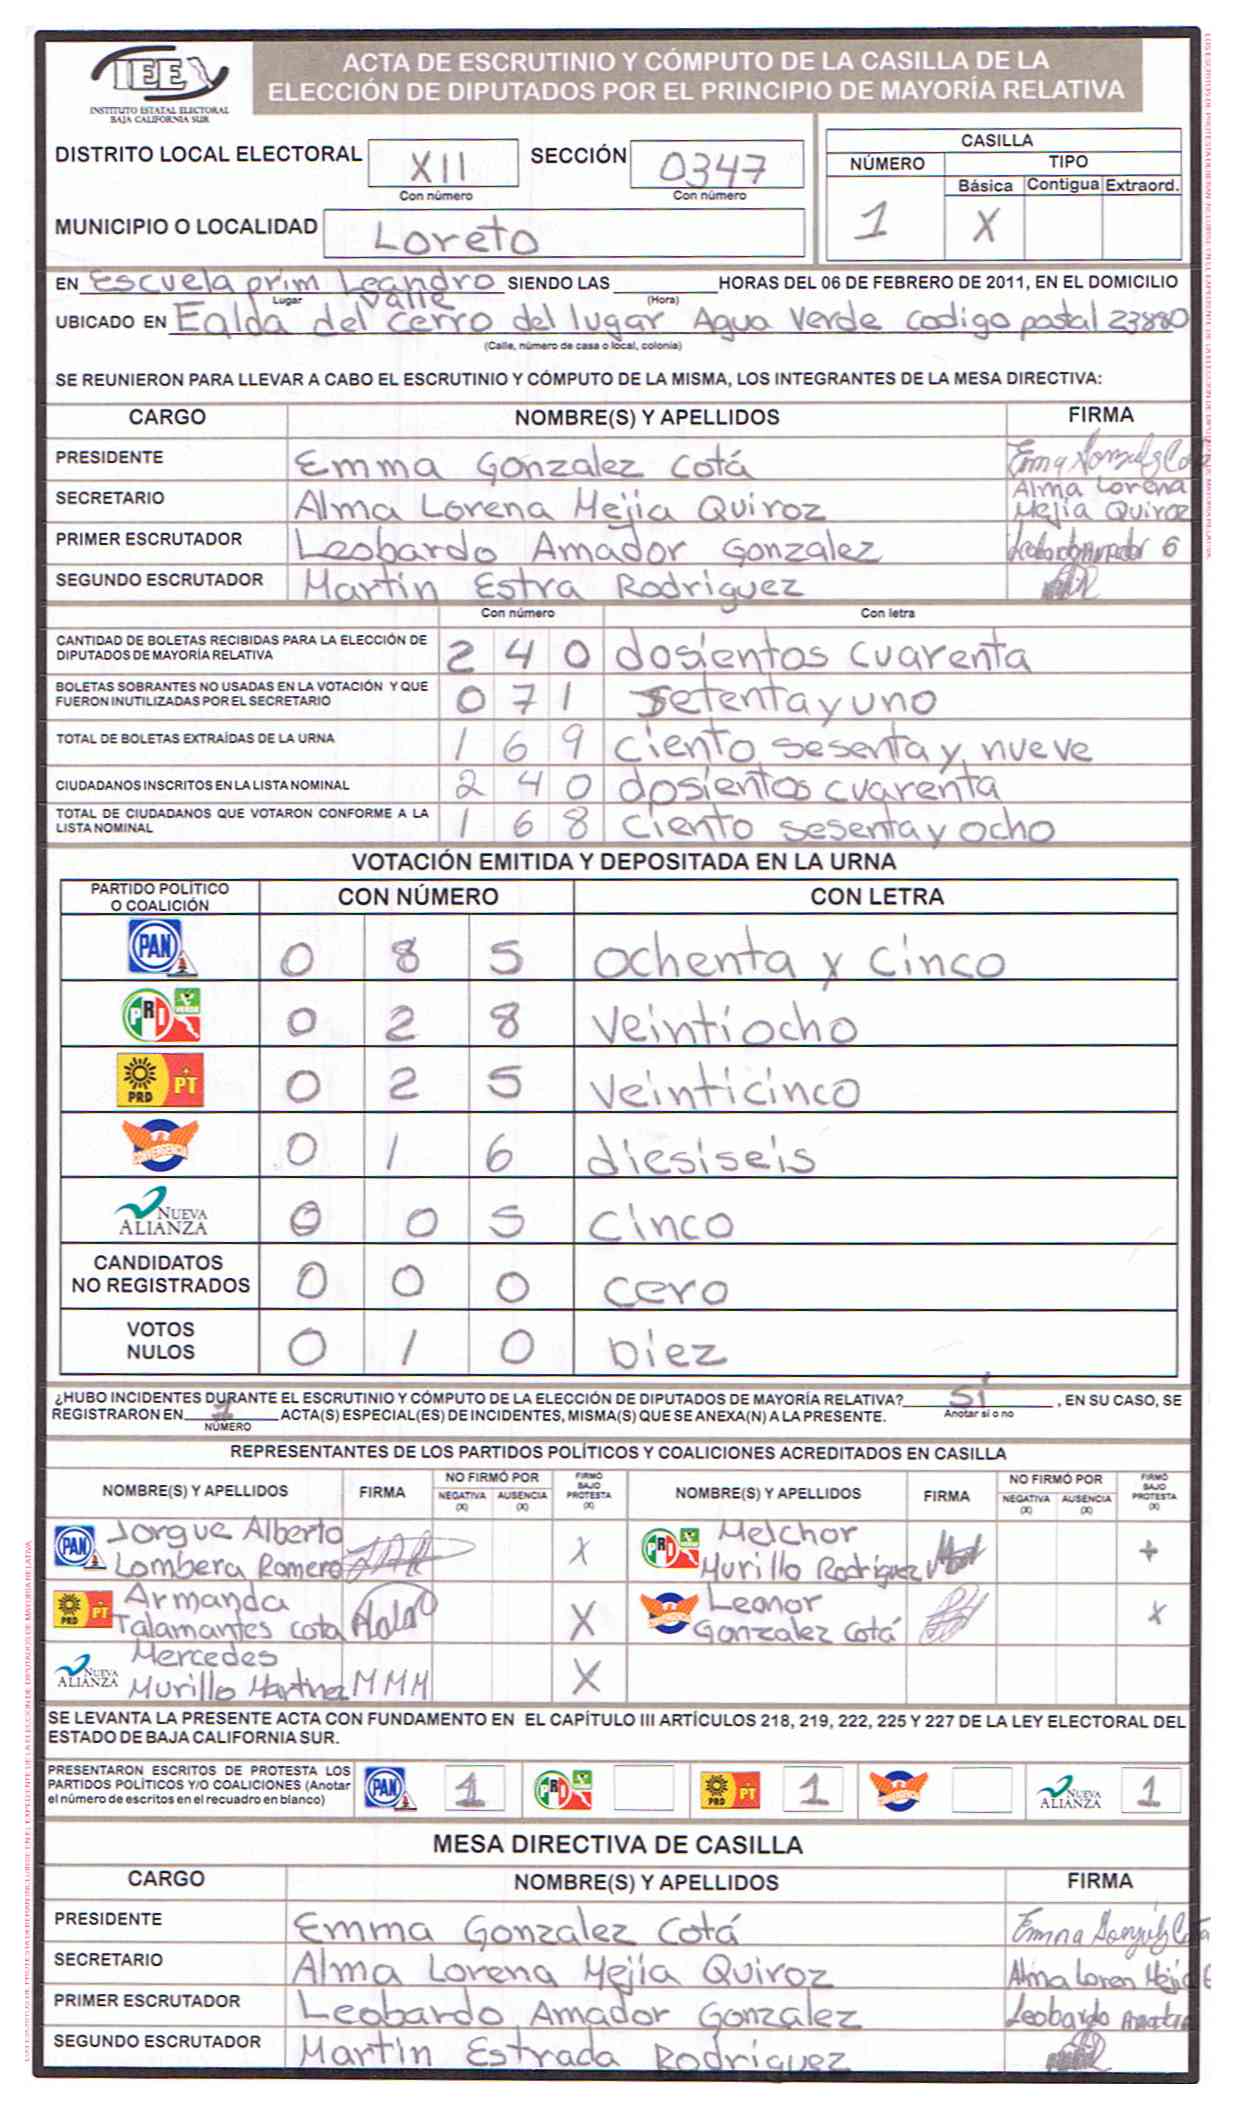 IEE
INSTITUTO ESTATAL ELECTORAL
BAJA CALIFORNIA SUR
ACTA DE ESCRUTINIO Y CÓMPUTO DE LA CASILLA DE LA
ELECCIÓN DE DIPUTADOS POR EL PRINCIPIO DE MAYORÍA RELATIVA
DISTRITO LOCAL ELECTORAL XII SECCIÓN 0347
Con número Con número
MUNICIPIO O LOCALIDAD Loreto
CASILLA
NÚMERO TIPO
Básica Contigua Extraord.
1 X
EN Escuela prim Leandro Valle SIENDO LAS HORAS DEL 06 DE FEBRERO DE 2011, EN EL DOMICILIO
Lugar (Hora)
UBICADO EN Falda del cerro del lugar Agua Verde codigo postal 23880
(Calle, número de casa o local, colonia)
SE REUNIERON PARA LLEVAR A CABO EL ESCRUTINIO Y CÓMPUTO DE LA MISMA, LOS INTEGRANTES DE LA MESA DIRECTIVA:
CARGO NOMBRE(S) Y APELLIDOS FIRMA
PRESIDENTE Emma Gonzalez Cotá
SECRETARIO Alma Lorena Mejia Quiroz Alma Lorena Mejia Quiroz
PRIMER ESCRUTADOR Leobardo Amador Gonzalez Leobardo Amador G
SEGUNDO ESCRUTADOR Martin Estra Rodriguez
Con número Con letra
CANTIDAD DE BOLETAS RECIBIDAS PARA LA ELECCIÓN DE
DIPUTADOS DE MAYORÍA RELATIVA 2 4 0 dosientos cuarenta
BOLETAS SOBRANTES NO USADAS EN LA VOTACIÓN Y QUE
FUERON INUTILIZADAS POR EL SECRETARIO 0 7 1 Setenta y uno
TOTAL DE BOLETAS EXTRAÍDAS DE LA URNA 1 6 9 ciento sesenta y nueve
CIUDADANOS INSCRITOS EN LA LISTA NOMINAL 2 4 0 dosientos cuarenta
TOTAL DE CIUDADANOS QUE VOTARON CONFORME A LA
LISTA NOMINAL 1 6 8 ciento sesenta y ocho
VOTACIÓN EMITIDA Y DEPOSITADA EN LA URNA
PARTIDO POLÍTICO
O COALICIÓN CON NÚMERO CON LETRA
PAN 0 8 5 ochenta y cinco
PRI VERDE 0 2 8 veintiocho
PRD PT 0 2 5 veinticinco
CONVERGENCIA 0 1 6 diesiseis
NUEVA ALIANZA 0 0 5 cinco
CANDIDATOS
NO REGISTRADOS 0 0 0 cero
VOTOS
NULOS 0 1 0 Diez
¿HUBO INCIDENTES DURANTE EL ESCRUTINIO Y CÓMPUTO DE LA ELECCIÓN DE DIPUTADOS DE MAYORÍA RELATIVA? sí , EN SU CASO, SE
Anotar sí o no
REGISTRARON EN 1 ACTA(S) ESPECIAL(ES) DE INCIDENTES, MISMA(S) QUE SE ANEXA(N) A LA PRESENTE.
NÚMERO
REPRESENTANTES DE LOS PARTIDOS POLÍTICOS Y COALICIONES ACREDITADOS EN CASILLA
NOMBRE(S) Y APELLIDOS FIRMA NO FIRMÓ POR NEGATIVA (X) AUSENCIA (X) FIRMÓ BAJO PROTESTA (X) NOMBRE(S) Y APELLIDOS FIRMA NO FIRMÓ POR NEGATIVA (X) AUSENCIA (X) FIRMÓ BAJO PROTESTA (X)
PAN Jorgue Alberto Lombera Romero X PRI VERDE Melchor Murillo Rodriguez +
PRD PT Armanda Talamantes cota X CONVERGENCIA Leonor Gonzalez Cotá X
NUEVA ALIANZA Mercedes Murillo Martinez MMM X
SE LEVANTA LA PRESENTE ACTA CON FUNDAMENTO EN EL CAPÍTULO III ARTÍCULOS 218, 219, 222, 225 Y 227 DE LA LEY ELECTORAL DEL
ESTADO DE BAJA CALIFORNIA SUR.
PRESENTARON ESCRITOS DE PROTESTA LOS
PARTIDOS POLÍTICOS Y/O COALICIONES (Anotar
el número de escritos en el recuadro en blanco)
PAN 1 PRI VERDE PRD PT 1 CONVERGENCIA NUEVA ALIANZA 1
MESA DIRECTIVA DE CASILLA
CARGO NOMBRE(S) Y APELLIDOS FIRMA
PRESIDENTE Emma Gonzalez Cotá
SECRETARIO Alma Lorena Mejia Quiroz Alma Loren Mejia
PRIMER ESCRUTADOR Leobardo Amador Gonzalez Leobardo
SEGUNDO ESCRUTADOR Martin Estrada Rodriguez